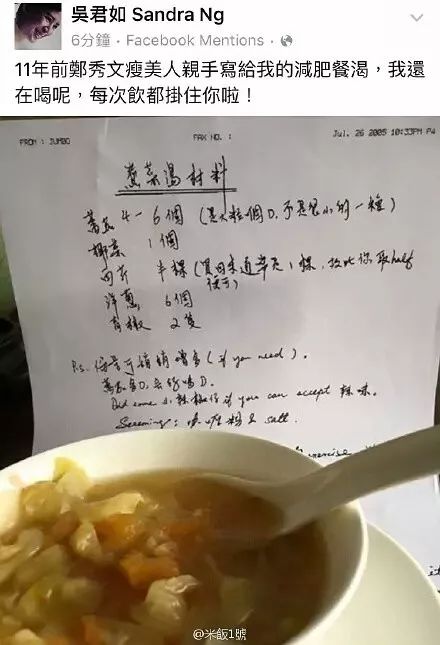 吳君如 Sandra Ng
6分鐘 · Facebook Mentions ·
11年前鄭秀文瘦美人親手寫給我的減肥餐渴，我還
在喝呢，每次飲都掛住你啦！
FROM : JUMBO FAX NO. : Jul. 26 2005 10:33PM P4
菜湯材料
蕃茄 4-6個 (買大粒個D,不是很小的一種)
椰菜 1個
西芹 半稞 (買回來通常是1稞,故此你取half
便可)
洋蔥 6個
青椒 2隻
P.s. 份量可稍稍增多 (if you need).
蕃茄多D,会好喝D.
小辣椒仔 if you can accept 辣味.
粉 & salt.
exercise
@米飯1號